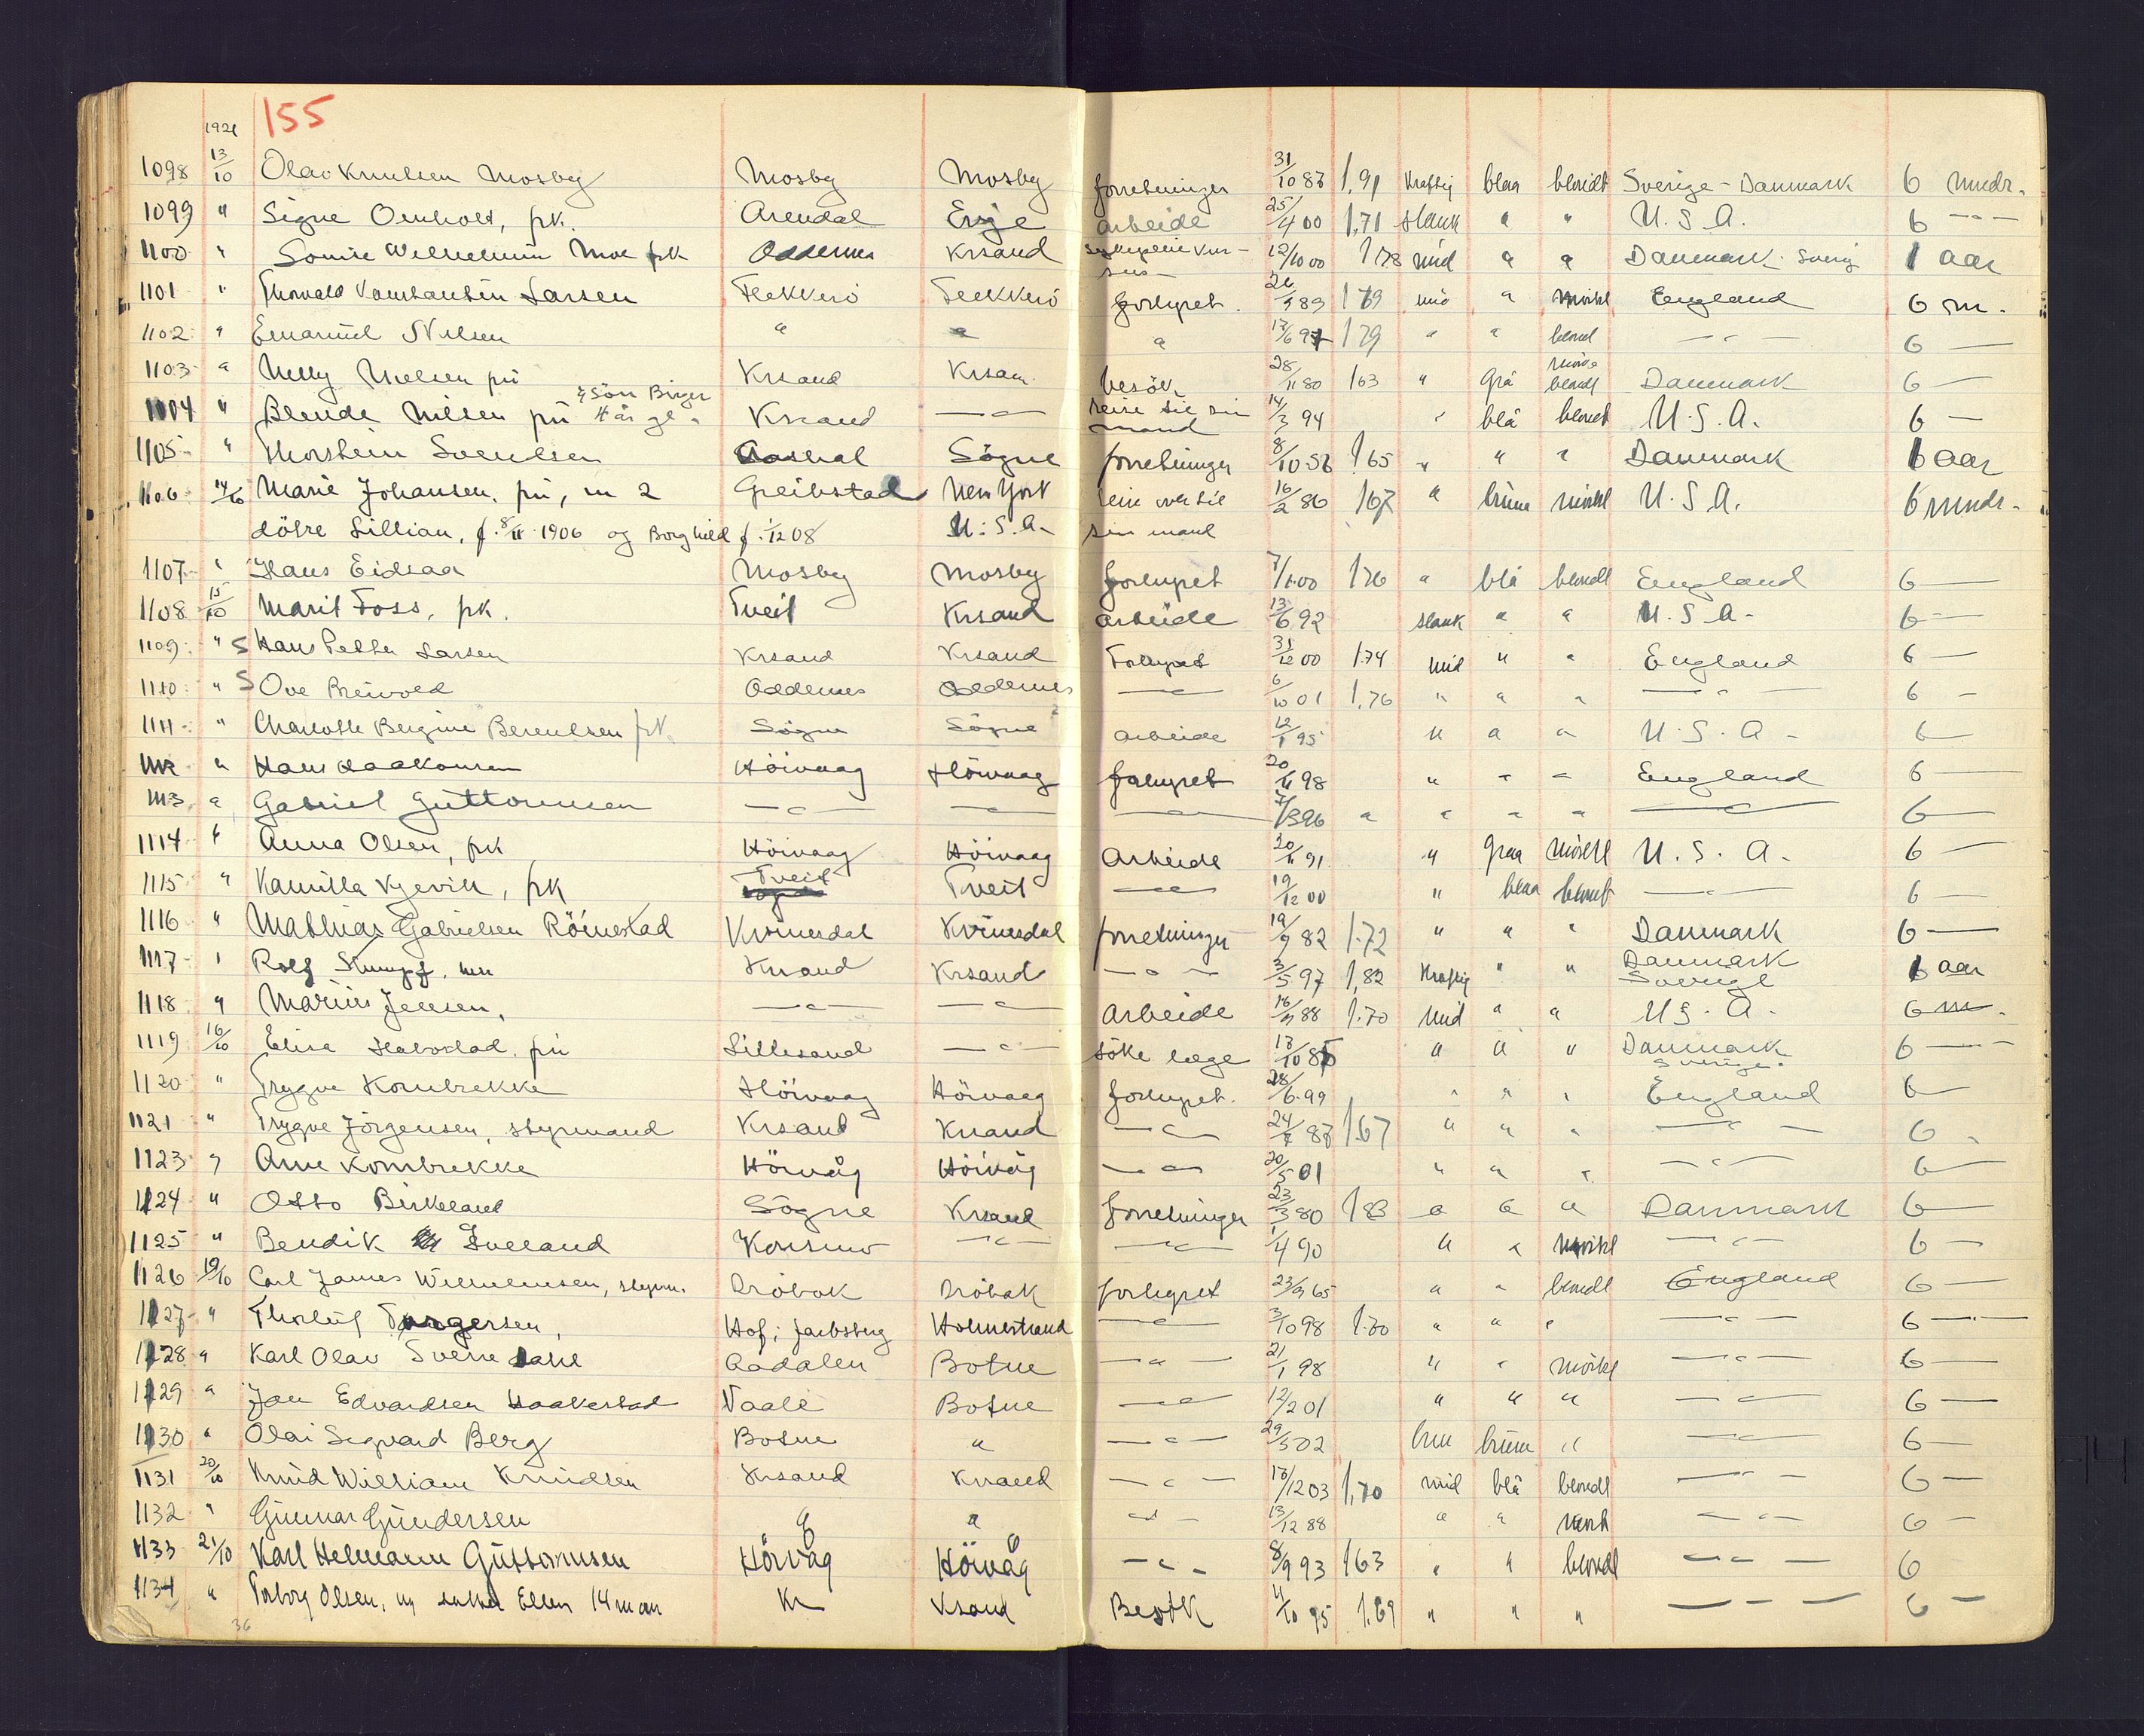 155
1921
1098 13/10 Olav Knutsen Mosby Mosby Mosby forretninger 31/10 83 1,91 Kraftig blaa blondt Sverige - Danmark 6 mndr.
1099 " Signe Omholt, frk. Arendal Evje arbeide 25/4 00 1,71 slank " " U. S. A. 6 - " -
1100 " Wilhelmine Moe frk Oddernes Krsand 12/10 00 1,78 mid " " Danmark - Sverig 1 aar
1101 " Thorvald Larsen Flekkerö Flekkerö forhyret. 89 1 79 mid " mörkt England 6 m.
1102 " Emanuel Nilsen " " " 1 79 " " blond — " — 6 —
1103 " Nelly Nielsen fru Krsand Krsan. besök 28/11 80 1 63 " grå blondt Danmark 6 —
& Sön Birger
1104 " Blenda Nilsen fru 4 år gl. Krsand — " — reise til sin mand 14/3 94 " blå blondt U. S. A. 6 —
1105 " Thorstein Svendsen Sögne forretninger 8/10 56 1 65 " " " Danmark 1 aar
1106 14/10 Marie Johansen, fru, m 2 Greibstad New York reise over til 16/2 86 1 67 " brune mörkt U. S. A. 6 mndr.
dötre Lillian, f. 8/11 1906 og Borghild f. 1/12 08 U. S. A. sin mand
1107 " Hans Eidsaa Mosby Mosby forhyret 7/1 00 1 76 " blå blondt England 6 —
1108 15/10 Marit Foss, frk. Tveit Krsand arbeide 13/6 92 slank " " U. S. A. 6 —
1109 " S Hans Petter Larsen Krsand Krsand Forhyret 31/12 00 1.74 mid " " England 6 —
1110 " S Ove Breivold Oddernes Oddernes — " — 6/10 01 1,76 " " " — " — 6 —
1111 " Charlotte Bergine Berentsen frk. Sögne Sögne arbeide 12/1 95 " " " U. S. A. 6 —
1112 " Hans Haakonsen Höivaag Höivaag forhyret 20/11 98 " " " England 6 —
1113 " Gabriel Guttormsen — " — — " — — " — 7/3 96 " " " " — " — 6 —
1114 " Anna Olsen, frk Höivaag Höivaag Arbeide 20/11 91 " graa mörkt U. S. A. 6 —
1115 " Kamilla Kjevik, frk Tveit Tveit — " — 19/12 00 " blaa blondt — " — 6 —
1116 " Mathias Gabrielsen Röinestad Kvinesdal Kvinesdal forretninger 19/9 82 1.72 " " " Danmark 6 —
1117 " Rolf Stumpf, Krsand Krsand — " — 3/5 97 1,82 Kraftig " " Danmark Sverige 1 aar
1118 " Marius Jensen, — " — — " — Arbeide 16/9 88 1.70 mid " " U. S. A. 6 m.
1119 16/10 Elisa Halvstad, fru Lillesand — " — söke læge " " " Danmark Sverige. 6 — " —
1120 " Trygve Kornbrekke Höivaag Höivaag forhyret. 28/6 99 " " " England 6 —
1121 " Trygve Jörgensen, styrmand Krsand Krsand — " — 1.67 " " " — " — 6 -
1123 " Arne Kornbrekke Höivåg Höivåg — " — 20/5 01 " " " — " — 6 —
1124 " Otto Birkeland Sögne Krsand forretninger 23/3 80 1 83 " " " Danmark 6 —
1125 " Bendik Iveland Konsmo — " — — " — 1/4 90 " " mörkt — " — 6 —
1126 19/10 Carl James Wilhelmsen, styrm. Dröbak Dröbak forhyret 23/9 65 " " blondt England 6 —
1127 " Thorleif Torgersen, Hof i Jarlsberg Holmestrand — " — 3/10 98 1.70 " " " — " — 6 — " —
1128 " Karl Olav Sverre Dahl Aadalen Botne — " — 21/1 98 " " mörkt — " — 6 —
1129 " Jan Edvardsen Haakestad Vaale Botne — " — 12/2 01 " " " — " — 6 —
1130 " Olai Sigvard Berg Botne " — " — 29/5 02 brune " — " — 6 —
1131 20/10 Knud William Knudsen Krsand Krsand — " — 18/12 03 1,70 mid blå blondt — " — 6 —
1132 " Gunnar Gundersen " " — " — 13/12 88 " " mörk — " — 6 —
1133 21/10 Karl Helmann Guttormsen Höivåg Höivåg — " — 8/9 93 1 63 " " blondt — " — 6
1134 " Torborg Olsen, og datter Ellen 14 m an Kr Krsand Besök 11/10 95 1.69 " " " — " — 6 —
36